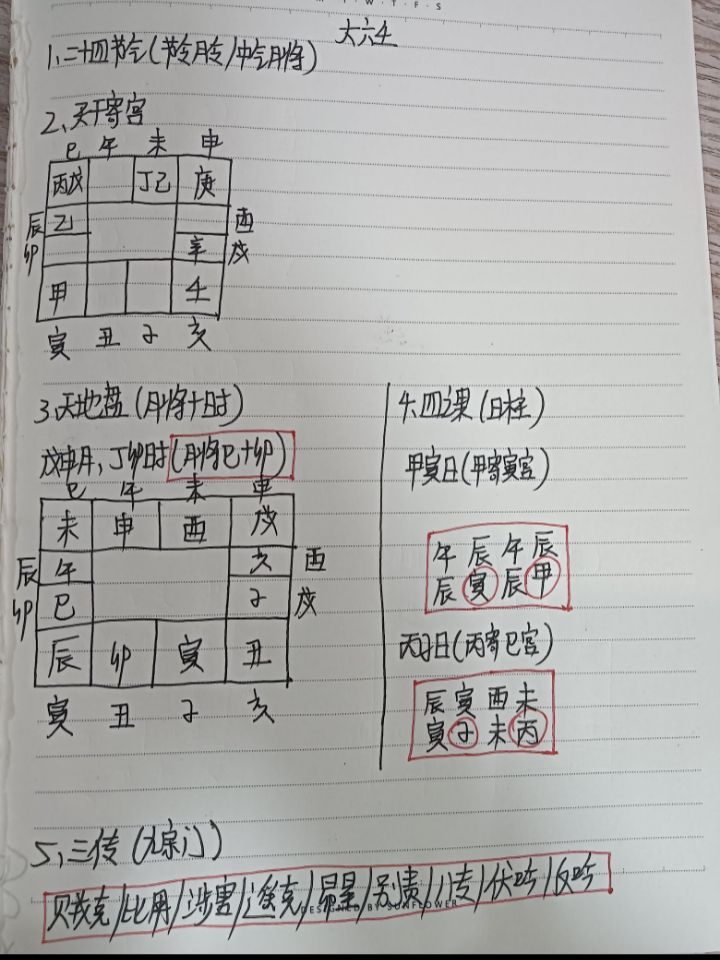 大六壬
1、二十四节气(节令月令/中气月将)
2、天干寄宫
巳 午 未 申
丙戊 丁己 庚
辰 乙 酉
卯 辛 戌
甲 壬
寅 丑 子 亥
3.天地盘(月将+时)
戊申月,丁卯时(月将巳+卯)
巳 午 未 申
未 申 酉 戌
辰 午 亥 酉
卯 巳 子 戌
辰 卯 寅 丑
寅 丑 子 亥
4.四课(日柱)
甲寅日(甲寄寅宫)
午 辰 午 辰
辰 寅 辰 甲
丙子日(丙寄巳宫)
辰 寅 酉 未
寅 子 未 丙
5、三传(九宗门)
贼克/比用/涉害/遥克/昴星/别责/八专/伏吟/反吟
DESIGNED BY SUNFLOWER